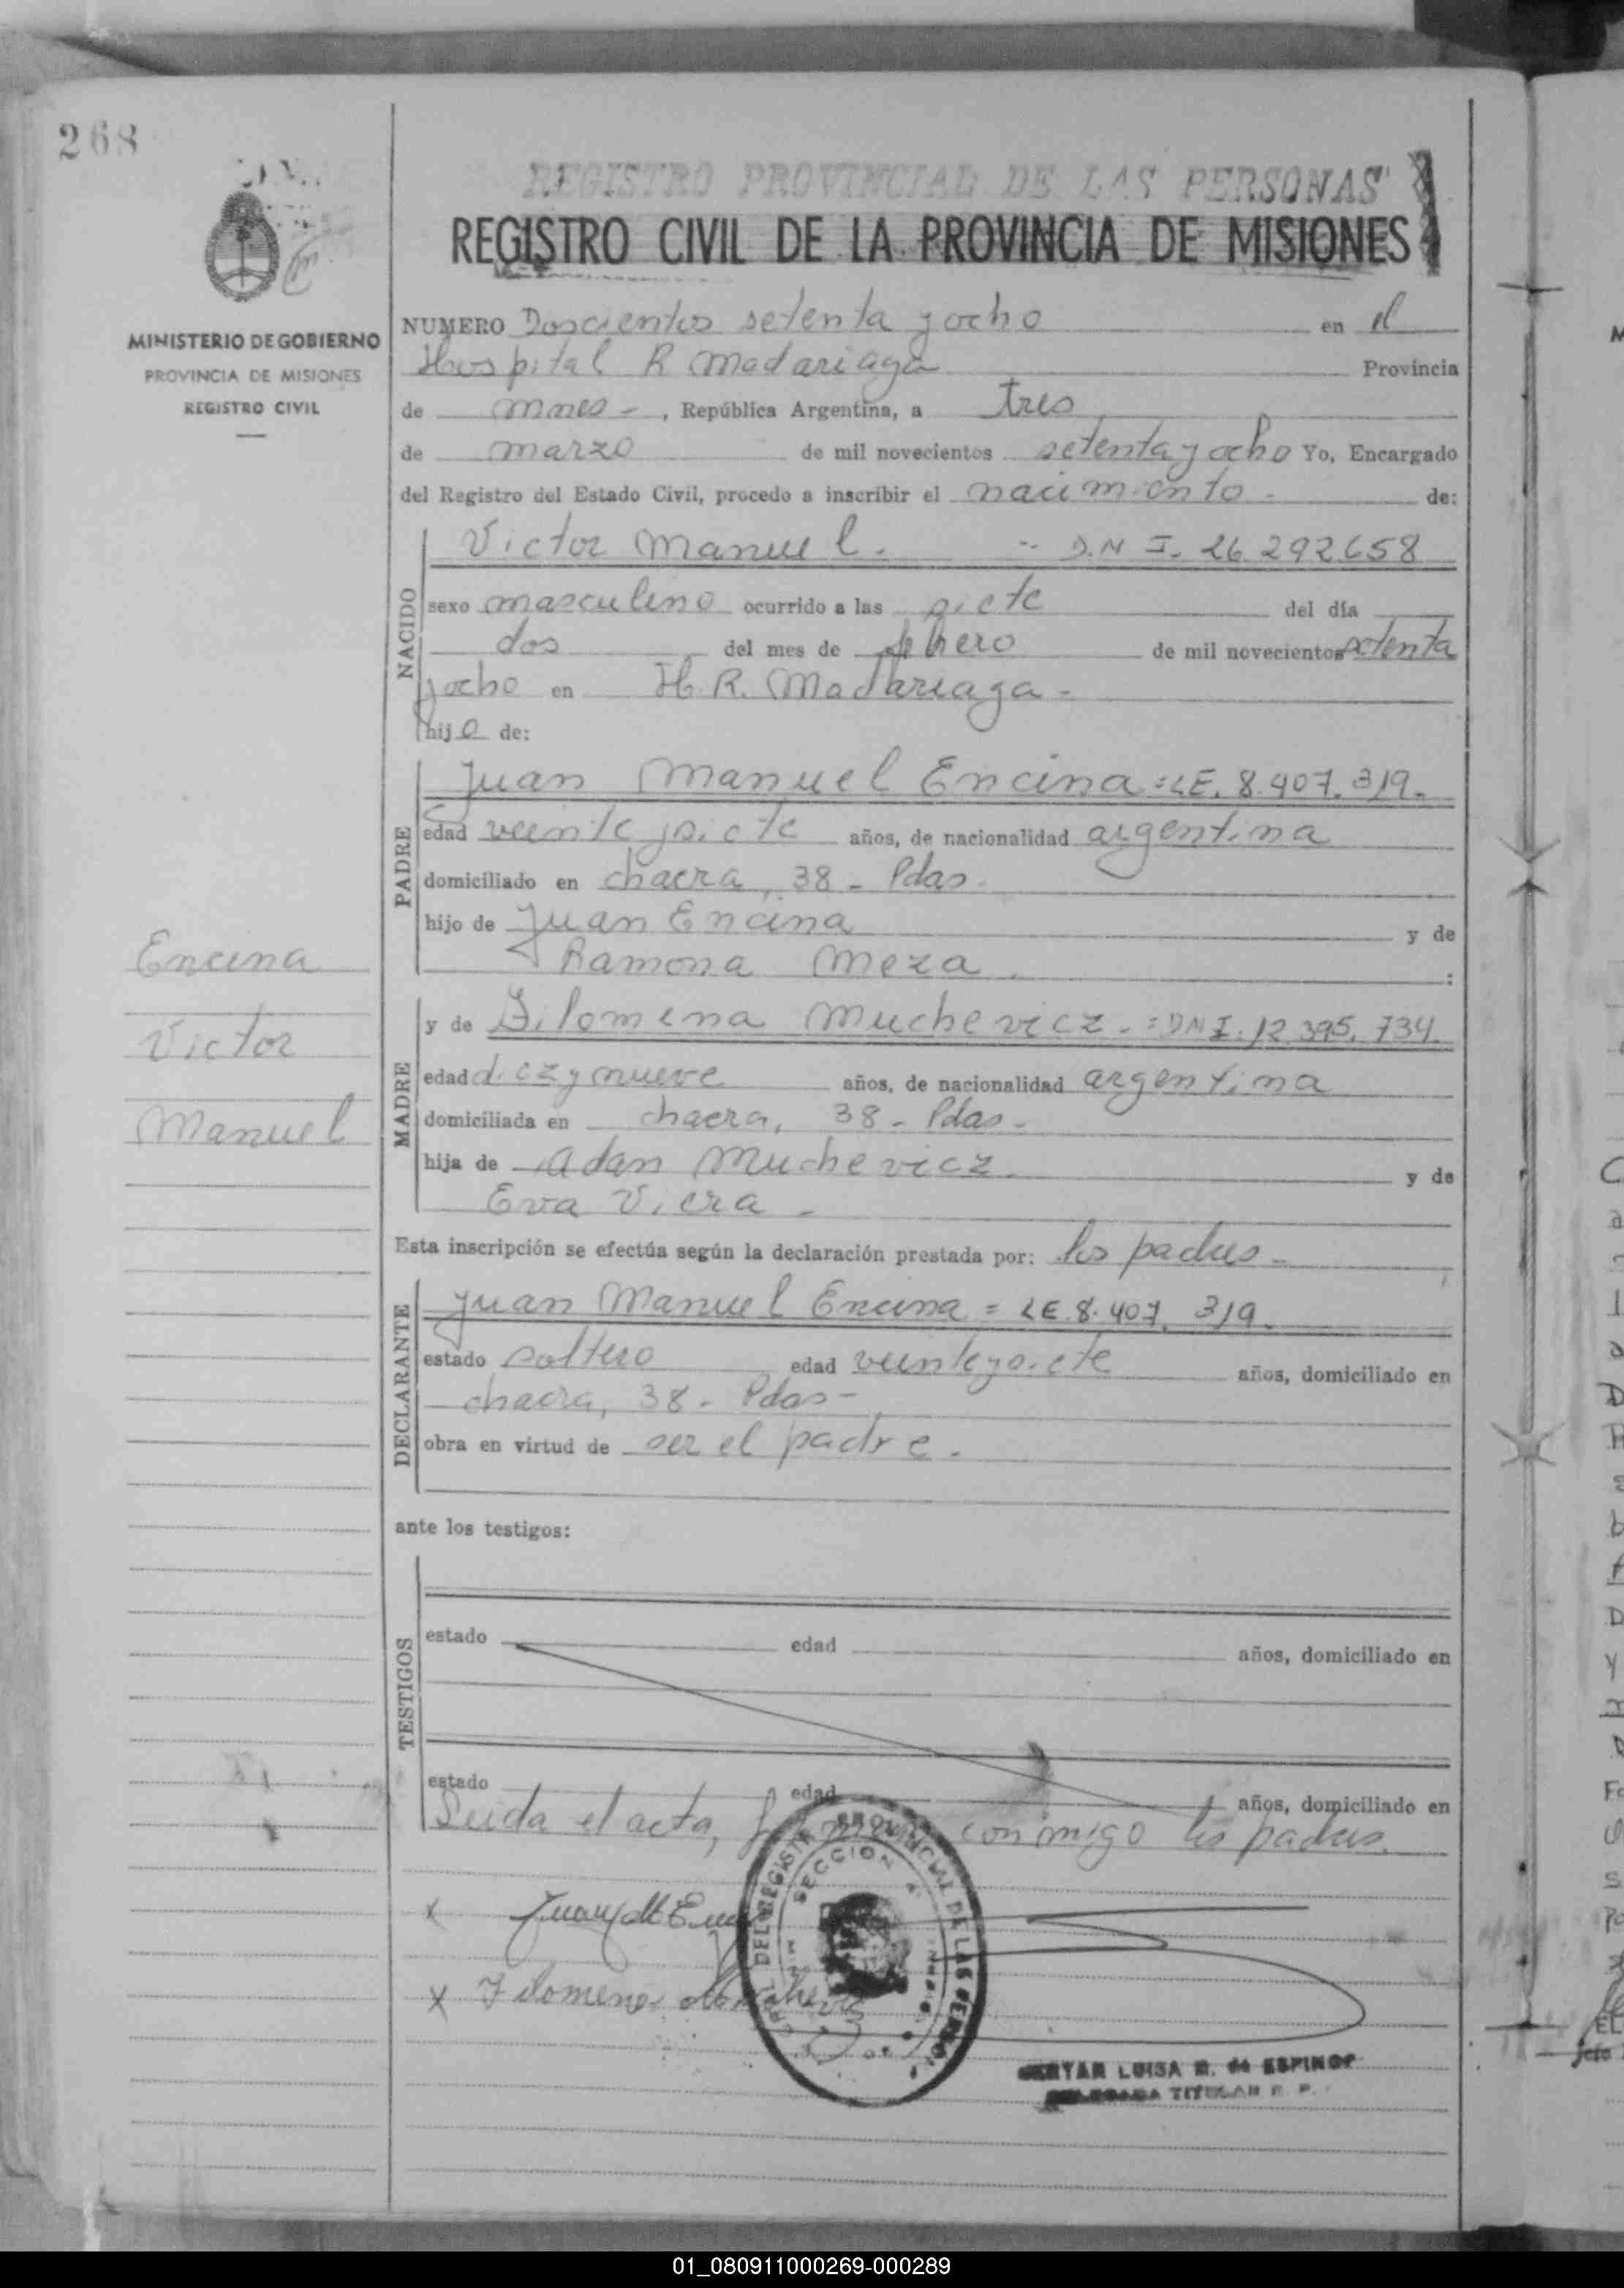 268
REGISTRO PROVINCIAL DE LAS PERSONAS
REGISTRO CIVIL DE LA PROVINCIA DE MISIONES
MINISTERIO DE GOBIERNO
PROVINCIA DE MISIONES
REGISTRO CIVIL
NUMERO Doscientos setenta y ocho en el
Hospital R Madariaga Provincia
de Mnes - , República Argentina, a tres
de marzo de mil novecientos setenta y ocho Yo, Encargado
del Registro del Estado Civil, procedo a inscribir el nacimiento - de:
NACIDO
Victor Manuel. - D.N I. 26.292.658
sexo masculino ocurrido a las siete del día
dos del mes de febrero de mil novecientos setenta
y ocho en H. R. Madariaga -
hijo de:
PADRE
Juan Manuel Encina = LE. 8.407.319.
edad veinte y siete años, de nacionalidad argentina
domiciliado en chacra, 38 - Pdas.
hijo de Juan Encina y de
Ramona Meza. :
Encina
Victor
Manuel
MADRE
y de Filomena Muchevicz. = DNI. 12.395.734.
edad diez y nueve años, de nacionalidad argentina
domiciliada en chacra, 38 - Pdas -
hija de Adan Muchevicz. y de
Eva Viera -
Esta inscripción se efectúa según la declaración prestada por: los padres -
DECLARANTE
Juan Manuel Encina = LE. 8.407.319.
estado soltero edad veinte y siete años, domiciliado en
chacra, 38 - Pdas -
obra en virtud de ser el padre.
ante los testigos:
TESTIGOS
estado edad años, domiciliado en
estado edad años, domiciliado en
Leida el acta, firman conmigo los padres.
x Juan M
x Filomena
SECCION
LUISA R. de ESPINOS
TITULAR R. P.
01_080911000269-000289